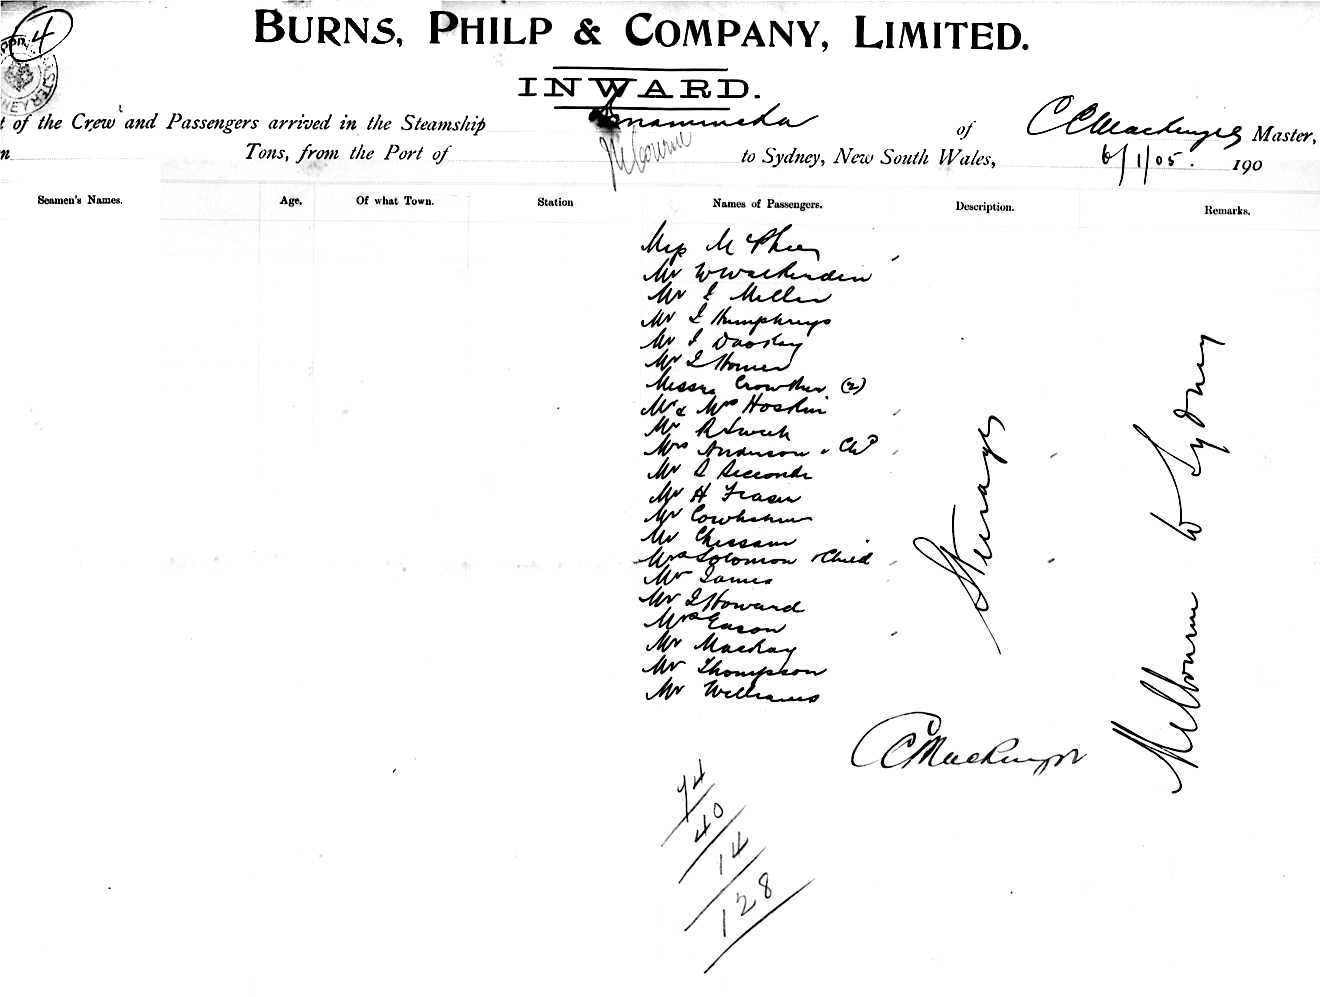 4
BURNS, PHILP & COMPANY, LIMITED.
INWARD.
t of the Crew and Passengers arrived in the Steamship Innamincka of CCMackenzie Master,
n Tons, from the Port of Melbourne to Sydney, New South Wales, 6/1/05. 190
Seamen's Names. Age. Of what Town. Station Names of Passengers. Description. Remarks.
Miss McPhee
Mr
Mr J Miller
Mr J Humphreys
Mr J
Mr J Homer
Messrs Crowther (2)
Mr & Mrs Hoskin
Mr R
Mrs Anderson & Chd
Mr
Mr H Fraser
Mr
Mr
Mrs Solomon & Child
Mr James
Mr J Howard
Mrs Eason
Mr Mackay
Mr Thompson
Mr Williams
Steerage
Melbourne to Sydney
CCMackenzie
74
40
14
128